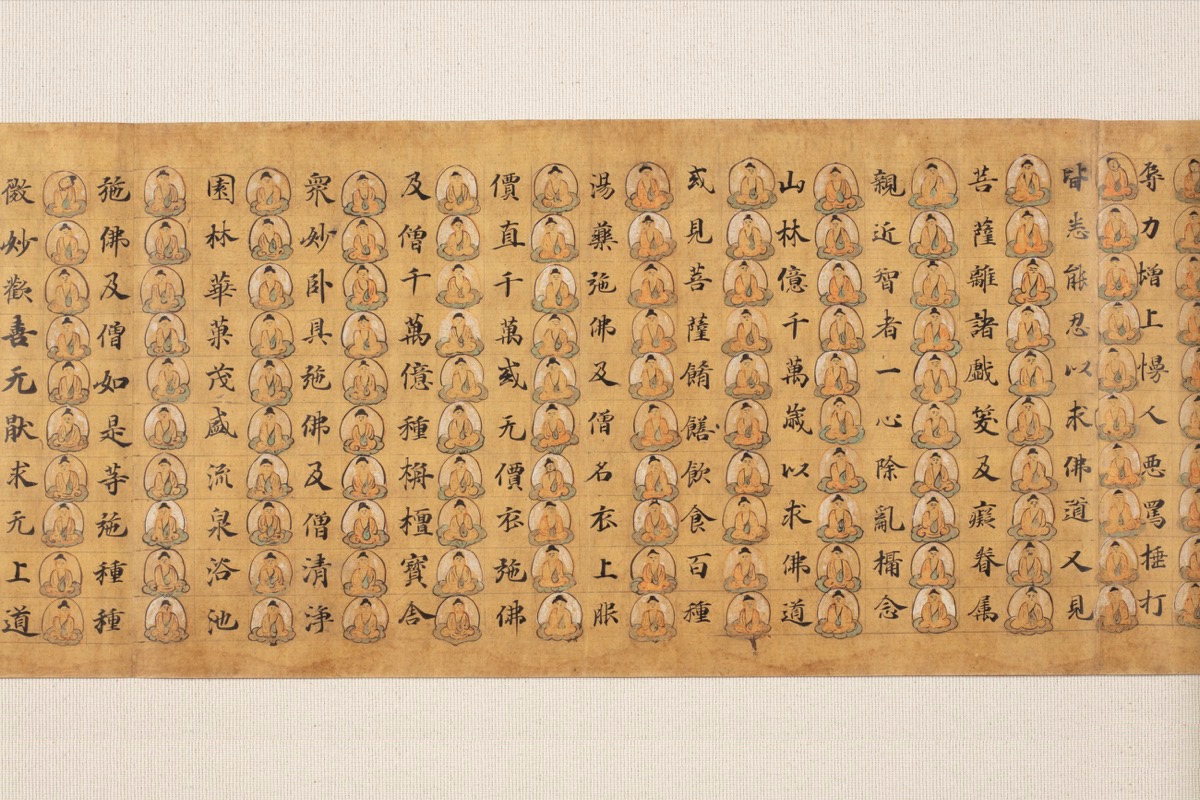 辱力增上慢人悪罵捶打
皆悉能忍以求佛道又見
菩薩離諸戲笑及癡眷属
親近智者一心除亂攝念
山林億千萬歲以求佛道
或見菩薩餚饍飲食百種
湯藥施佛及僧名衣上服
價直千萬或无價衣施佛
及僧千萬億種栴檀寶舍
衆妙卧具施佛及僧清淨
園林華菓茂盛流泉浴池
施佛及僧如是等施種種
微妙歡喜无猒求无上道